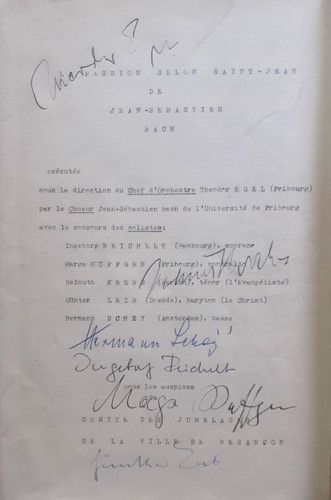 Theodor Egel
LA PASSION SELON SAINT-JEAN
DE
JEAN-SEBASTIEN
BACH
exécutée
sous le direction du Chef d'Orchestre Theodor EGEL (Fribourg)
par le Choeur Jean-Sébastien Bach de l'Université de Fribourg
avec le concours des solistes:
Ingeborg REICHELT (Hambourg), soprano
Marga HÖFFGEN (Fribourg), contralto
Helmuth KREBS ténor (l'Evangéliste)
Helmut Krebs
Günter LEIB (Dresde), baryton (le Christ)
Hermann SCHEY (Amsterdam), basse
Hermann Schey
Ingeborg Reichelt
sous les auspices
Marga Höffgen
COMITE DES JUMELAGES
DE LA VILLE DE BESANÇON
Günther Leib